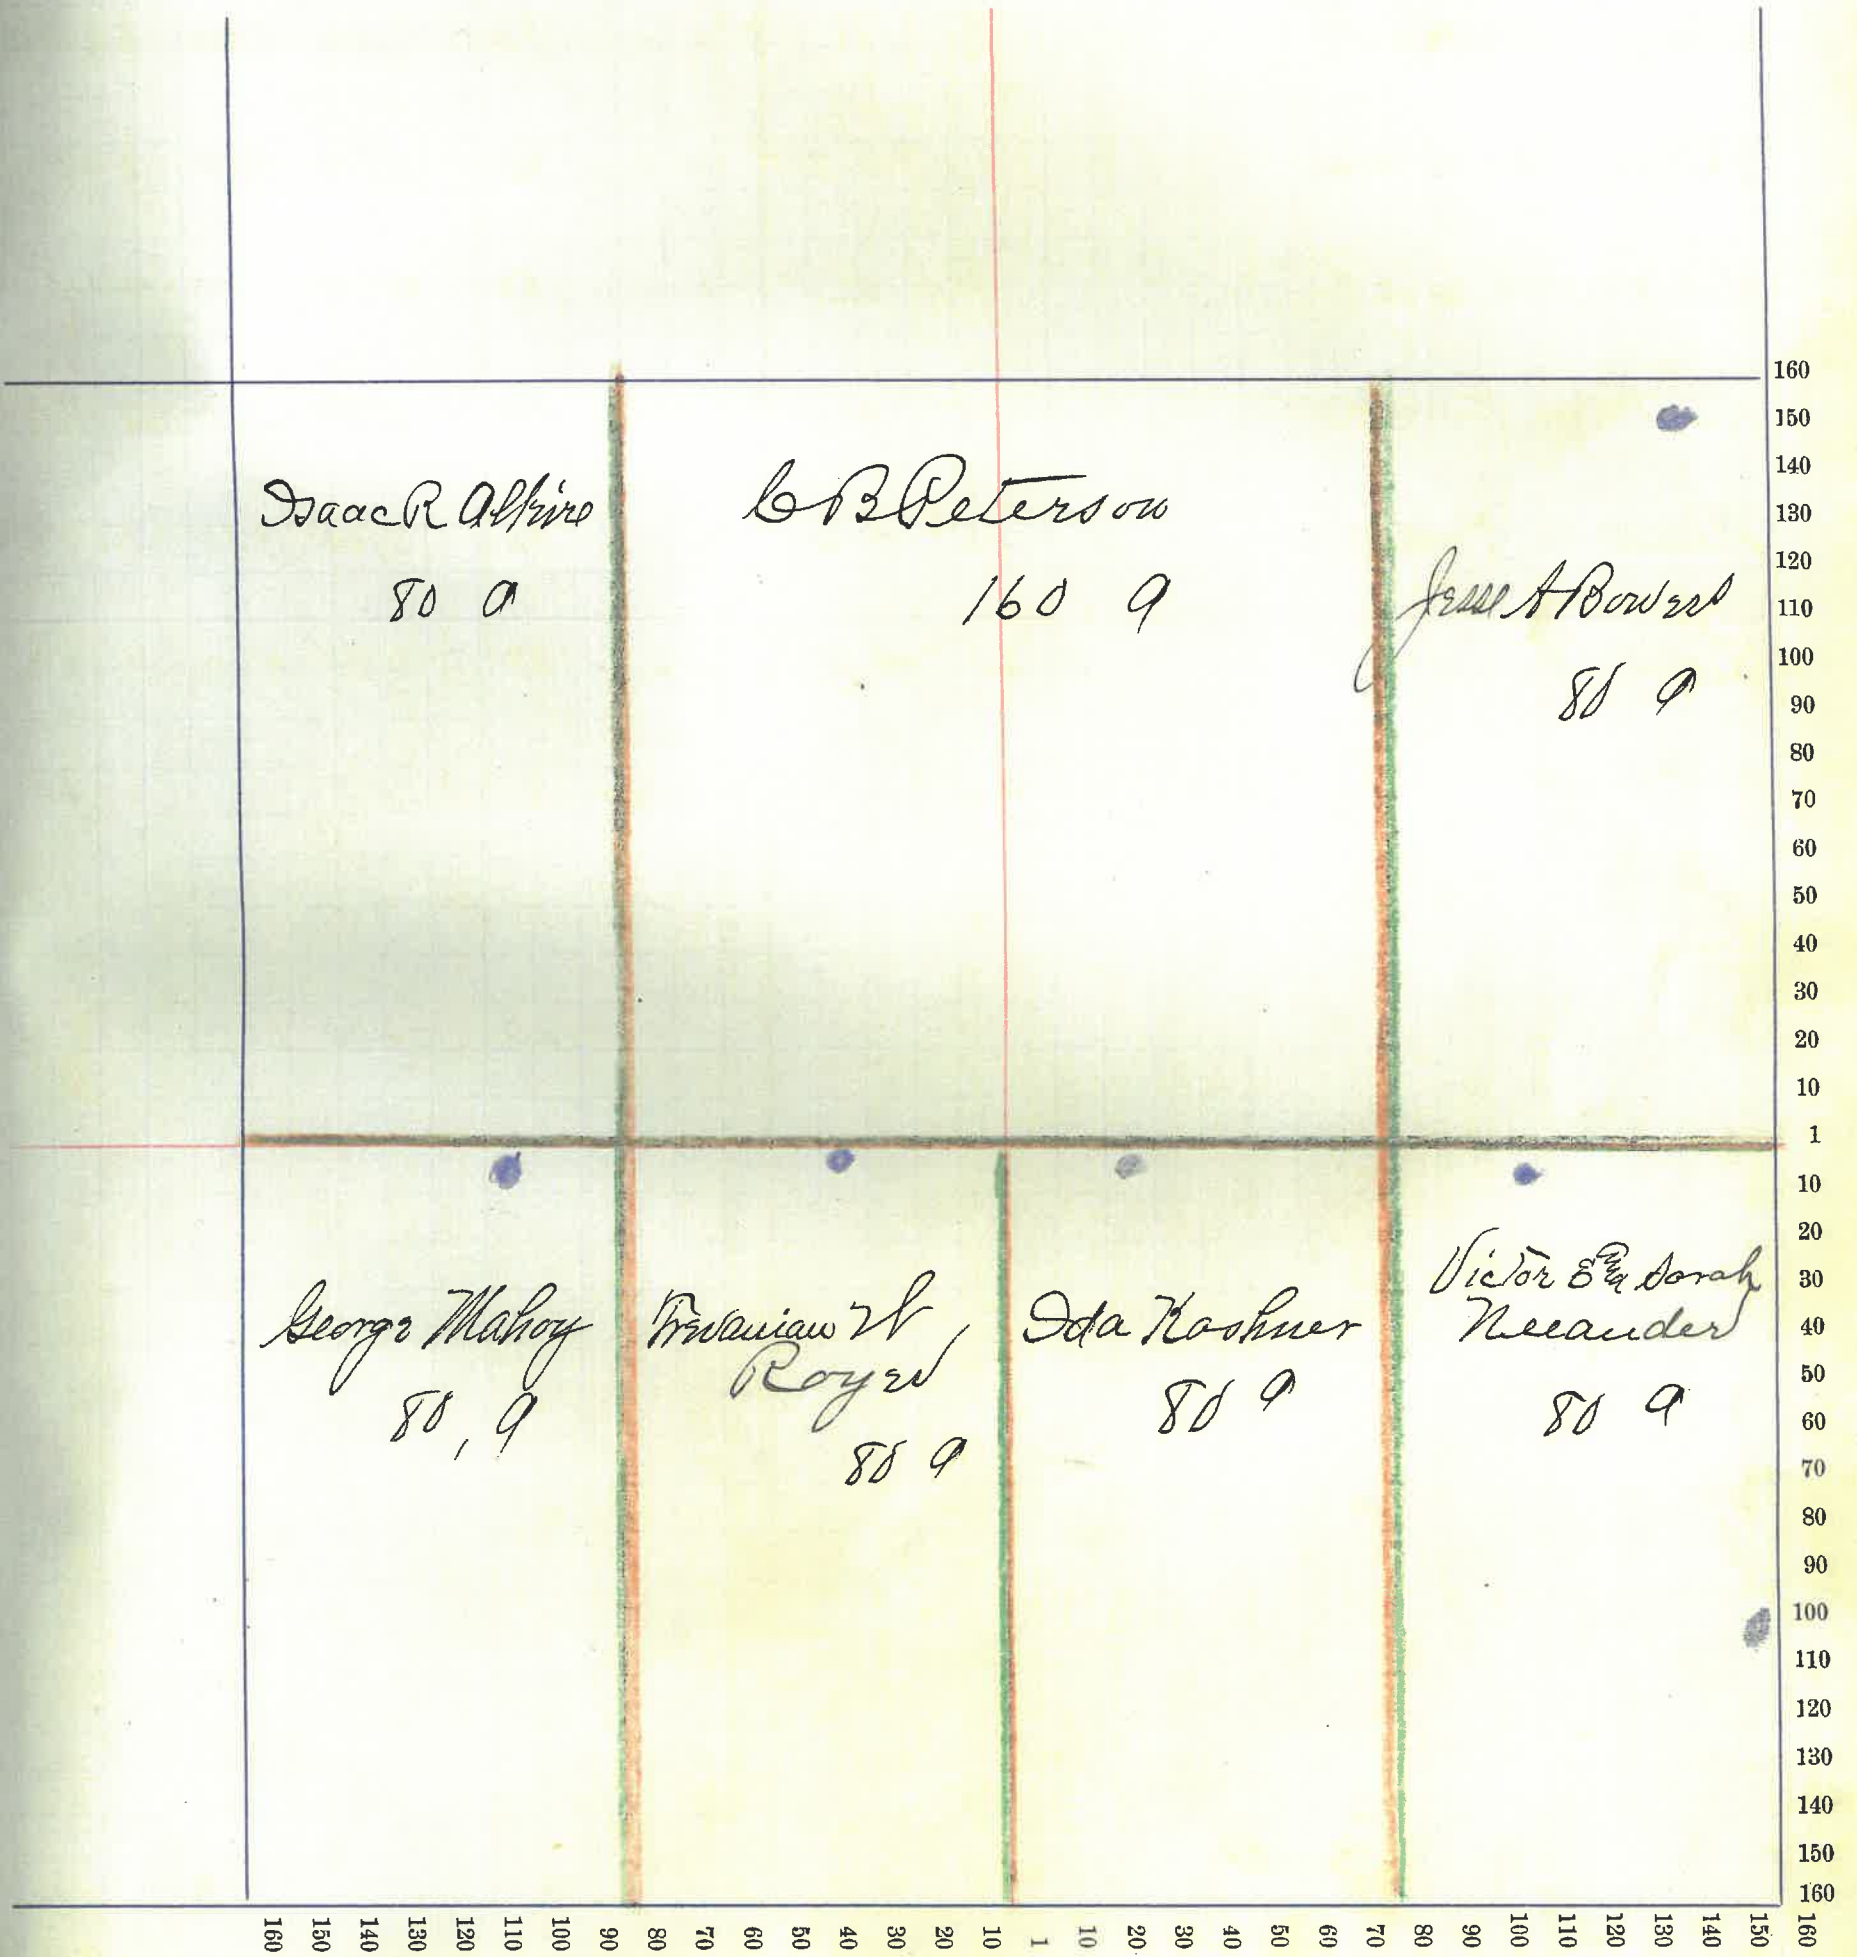 Isaac R Alkire
80 a
C B Peterson
160 a
Jesse A Bowers
80 a
George Mahoy
80, a
W,
Royer
80 a
Ida Kashner
80 a
Victor E Sarah
Neeander
80 a
160
150
140
130
120
110
100
90
80
70
60
50
40
30
20
10
1
10
20
30
40
50
60
70
80
90
100
110
120
130
140
150
160
160 150 140 130 120 110 100 90 80 70 60 50 40 30 20 10 1 10 20 30 40 50 60 70 80 90 100 110 120 130 140 150 160